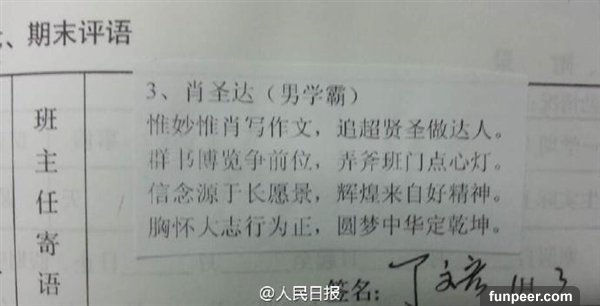 、期末评语
班
主
任
寄
语
3、肖圣达（男学霸）
惟妙惟肖写作文，追超贤圣做达人。
群书博览争前位，弄斧班门点心灯。
信念源于长愿景，辉煌来自好精神。
胸怀大志行为正，圆梦中华定乾坤。
签名：
@人民日报
funpeer.com